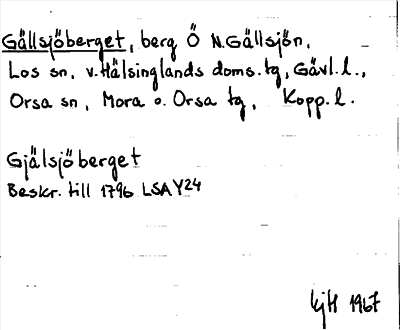 Gällsjöberget, berg Ö N.Gällsjön,
Los sn, v.Hälsinglands doms.tg, Gävl.l.,
Orsa sn, Mora o. Orsa tg, Kopp.l.
Gjälsjöberget
Beskr. till 1796 LSA Y24
kjH 1967